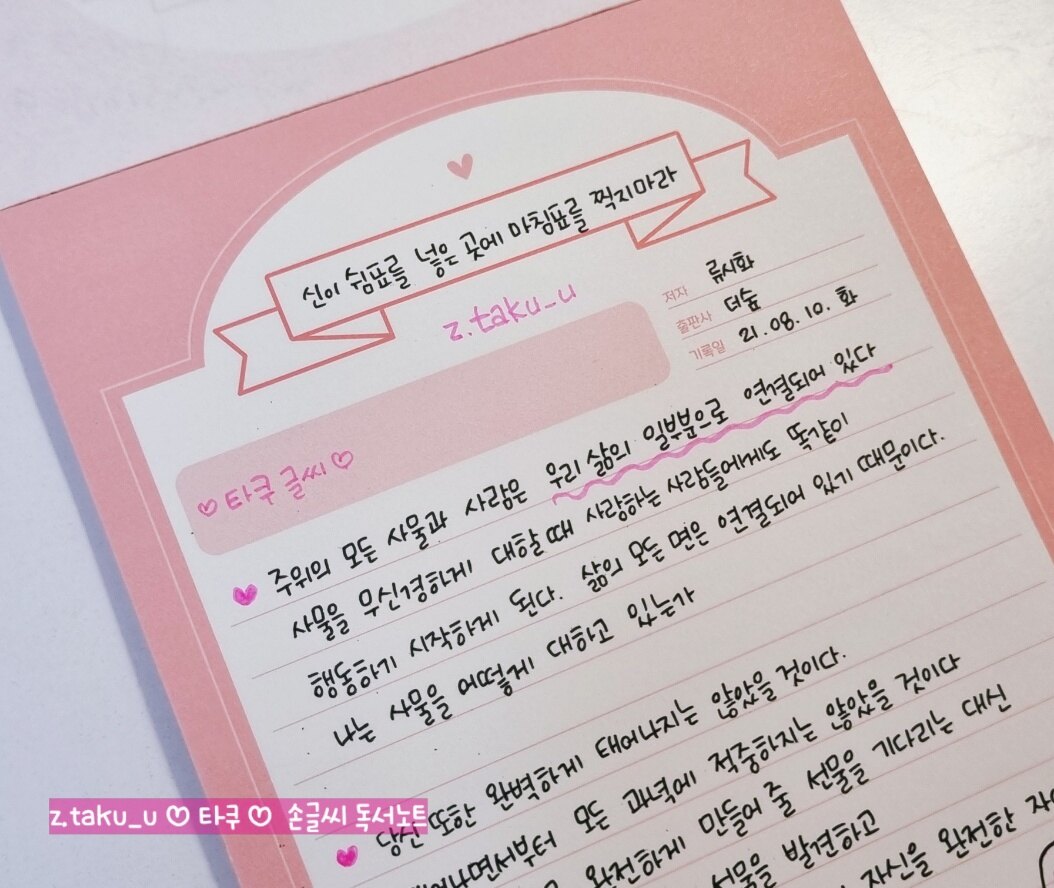 신이 쉼표를 넣은 곳에 마침표를 찍지마라
z.taku_u
저자 류시화
출판사 더숲
기록일 21.08.10. 화
♡ 타쿠 글씨 ♡
♥ 주위의 모든 사물과 사람은 우리 삶의 일부분으로 연결되어 있다
사물을 무신경하게 대할 때 사랑하는 사람들에게도 똑같이
행동하기 시작하게 된다. 삶의 모든 면은 연결되어 있기 때문이다.
나는 사물을 어떻게 대하고 있는가
♥ 당신 또한 완벽하게 태어나지는 않았을 것이다.
태어나면서부터 모든 과녁에 적중하지는 않았을 것이다
완전하게 만들어 줄 선물을 기다리는 대신
선물을 발견하고
자신을 완전한
z.taku_u ♡ 타쿠 ♡ 손글씨 독서노트